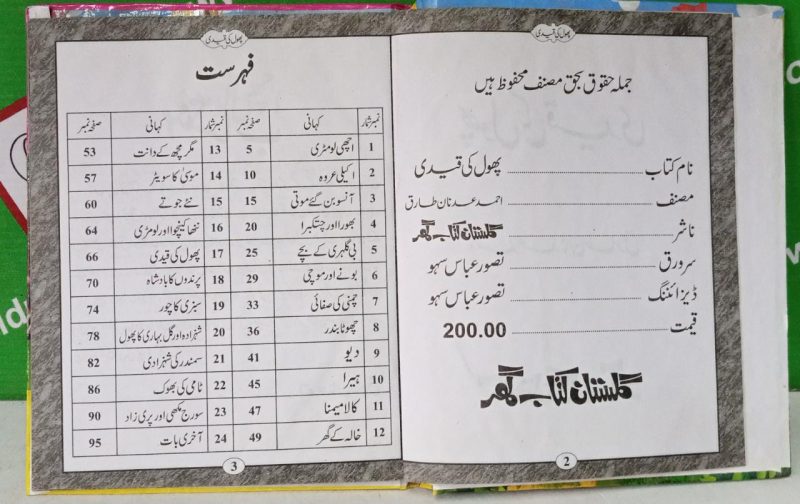 پھول کی قیدی
جملہ حقوق بحق مصنف محفوظ ہیں
نام کتاب ........ پھول کی قیدی
مصنف ........ احمد عدنان طارق
ناشر ........ گلستان کتاب گھر
سرورق ........ تصور عباس سہو
ڈیزائننگ ........ تصور عباس سہو
قیمت ........ 200.00
گلستان کتاب گھر
2
پھول کی قیدی
فہرست
نمبر شمار کہانی صفحہ نمبر نمبر شمار کہانی صفحہ نمبر
1 اچھی لومڑی 5 13 مگرمچھ کے دانت 53
2 اکیلی عروہ 10 14 موسیٰ کا سویٹر 57
3 آنسو بن گئے موتی 15 15 نئے جوتے 60
4 بھورا اور چتکبرا 20 16 ننھا کیچوا اور لومڑی 64
5 بی گلہری کے بچے 25 17 پھول کی قیدی 66
6 بونے اور موچی 29 18 پرندوں کا بادشاہ 70
7 چمنی کی صفائی 33 19 سبزی کا چور 74
8 چھوٹا بندر 36 20 شہزادہ اور گل بہاری کا پھول 78
9 دیو 41 21 سمندر کی شہزادی 82
10 ہیرا 45 22 ٹامی کی بھوک 86
11 کالا میمنا 47 23 سورج مکھی اور پری زاد 90
12 خالہ کے گھر 49 24 آخری بات 95
3